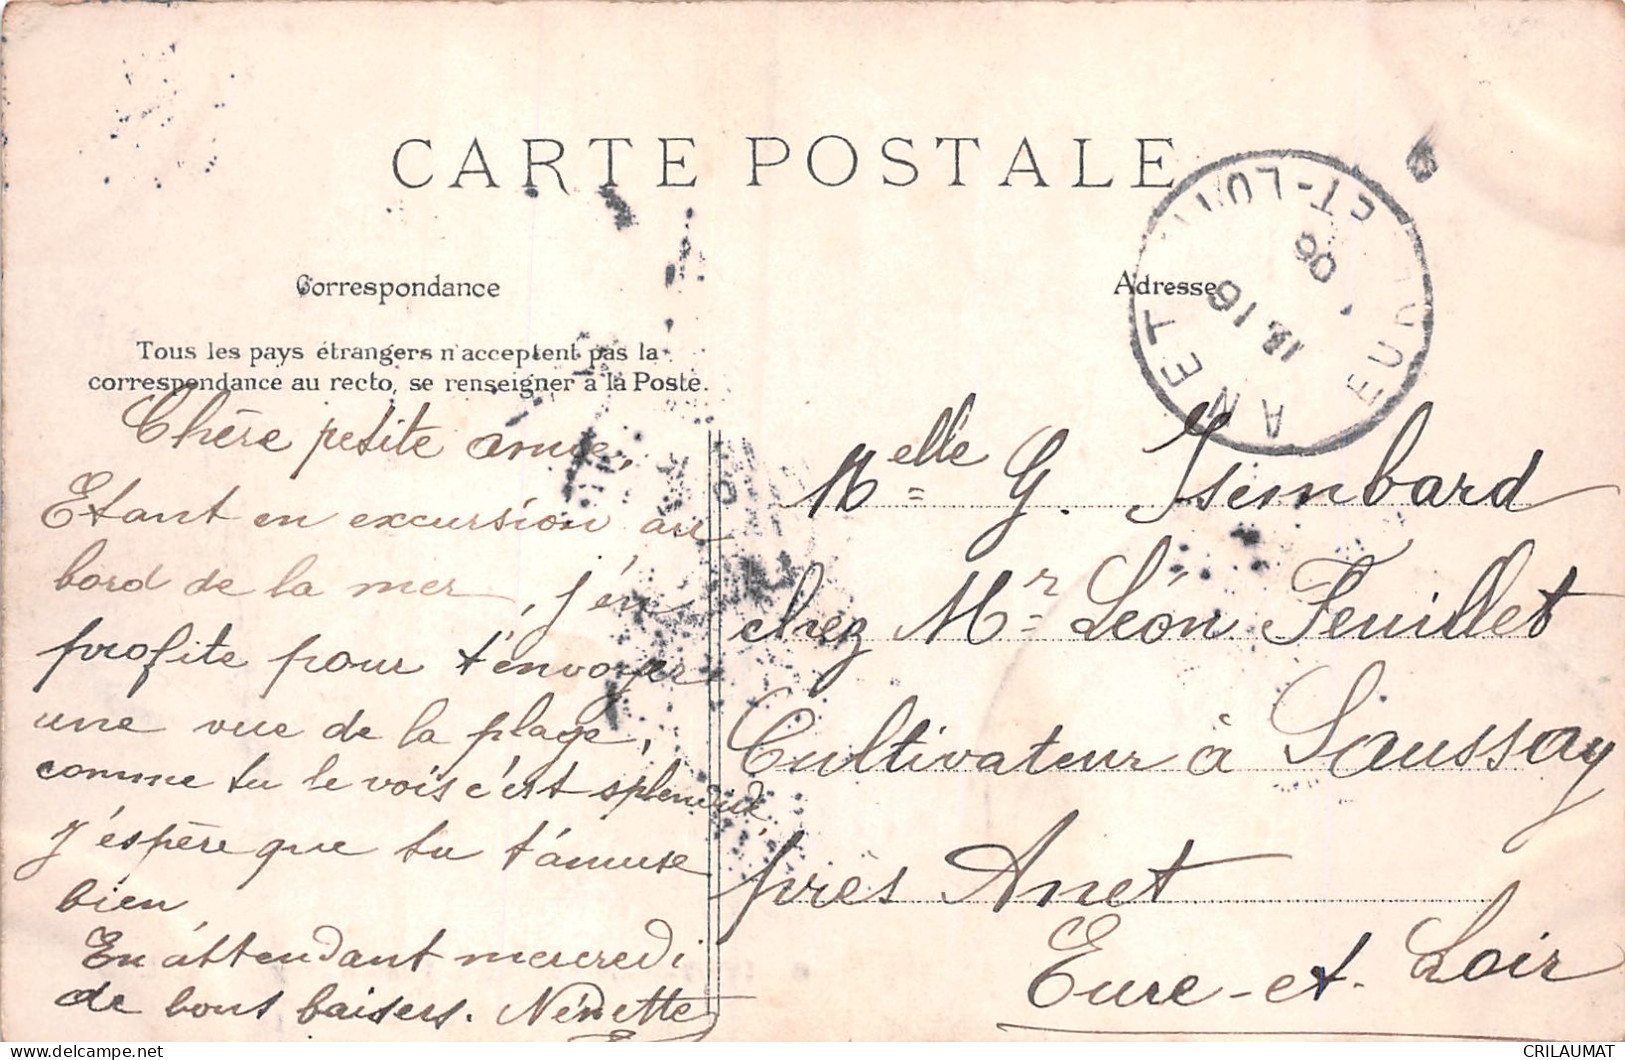 CARTE POSTALE
Correspondance
Tous les pays étrangers n'acceptent pas la
correspondance au recto, se renseigner à la Poste.
Chère petite amie,
Etant en excursion au
bord de la mer, j'en
profite pour t'envoyer
une vue de la plage,
comme tu le vois c'est splendid
J'espère que tu t'amuse
bien
En attendant mercredi
de bons baisers. Nénette
Adresse
ANET
EURE-ET-LOIR
16
06
Melle G. Isembard
chez Mr Léon Feuillet
Cultivateur à Saussay
près Anet
Eure-et-Loir
CRILAUMAT